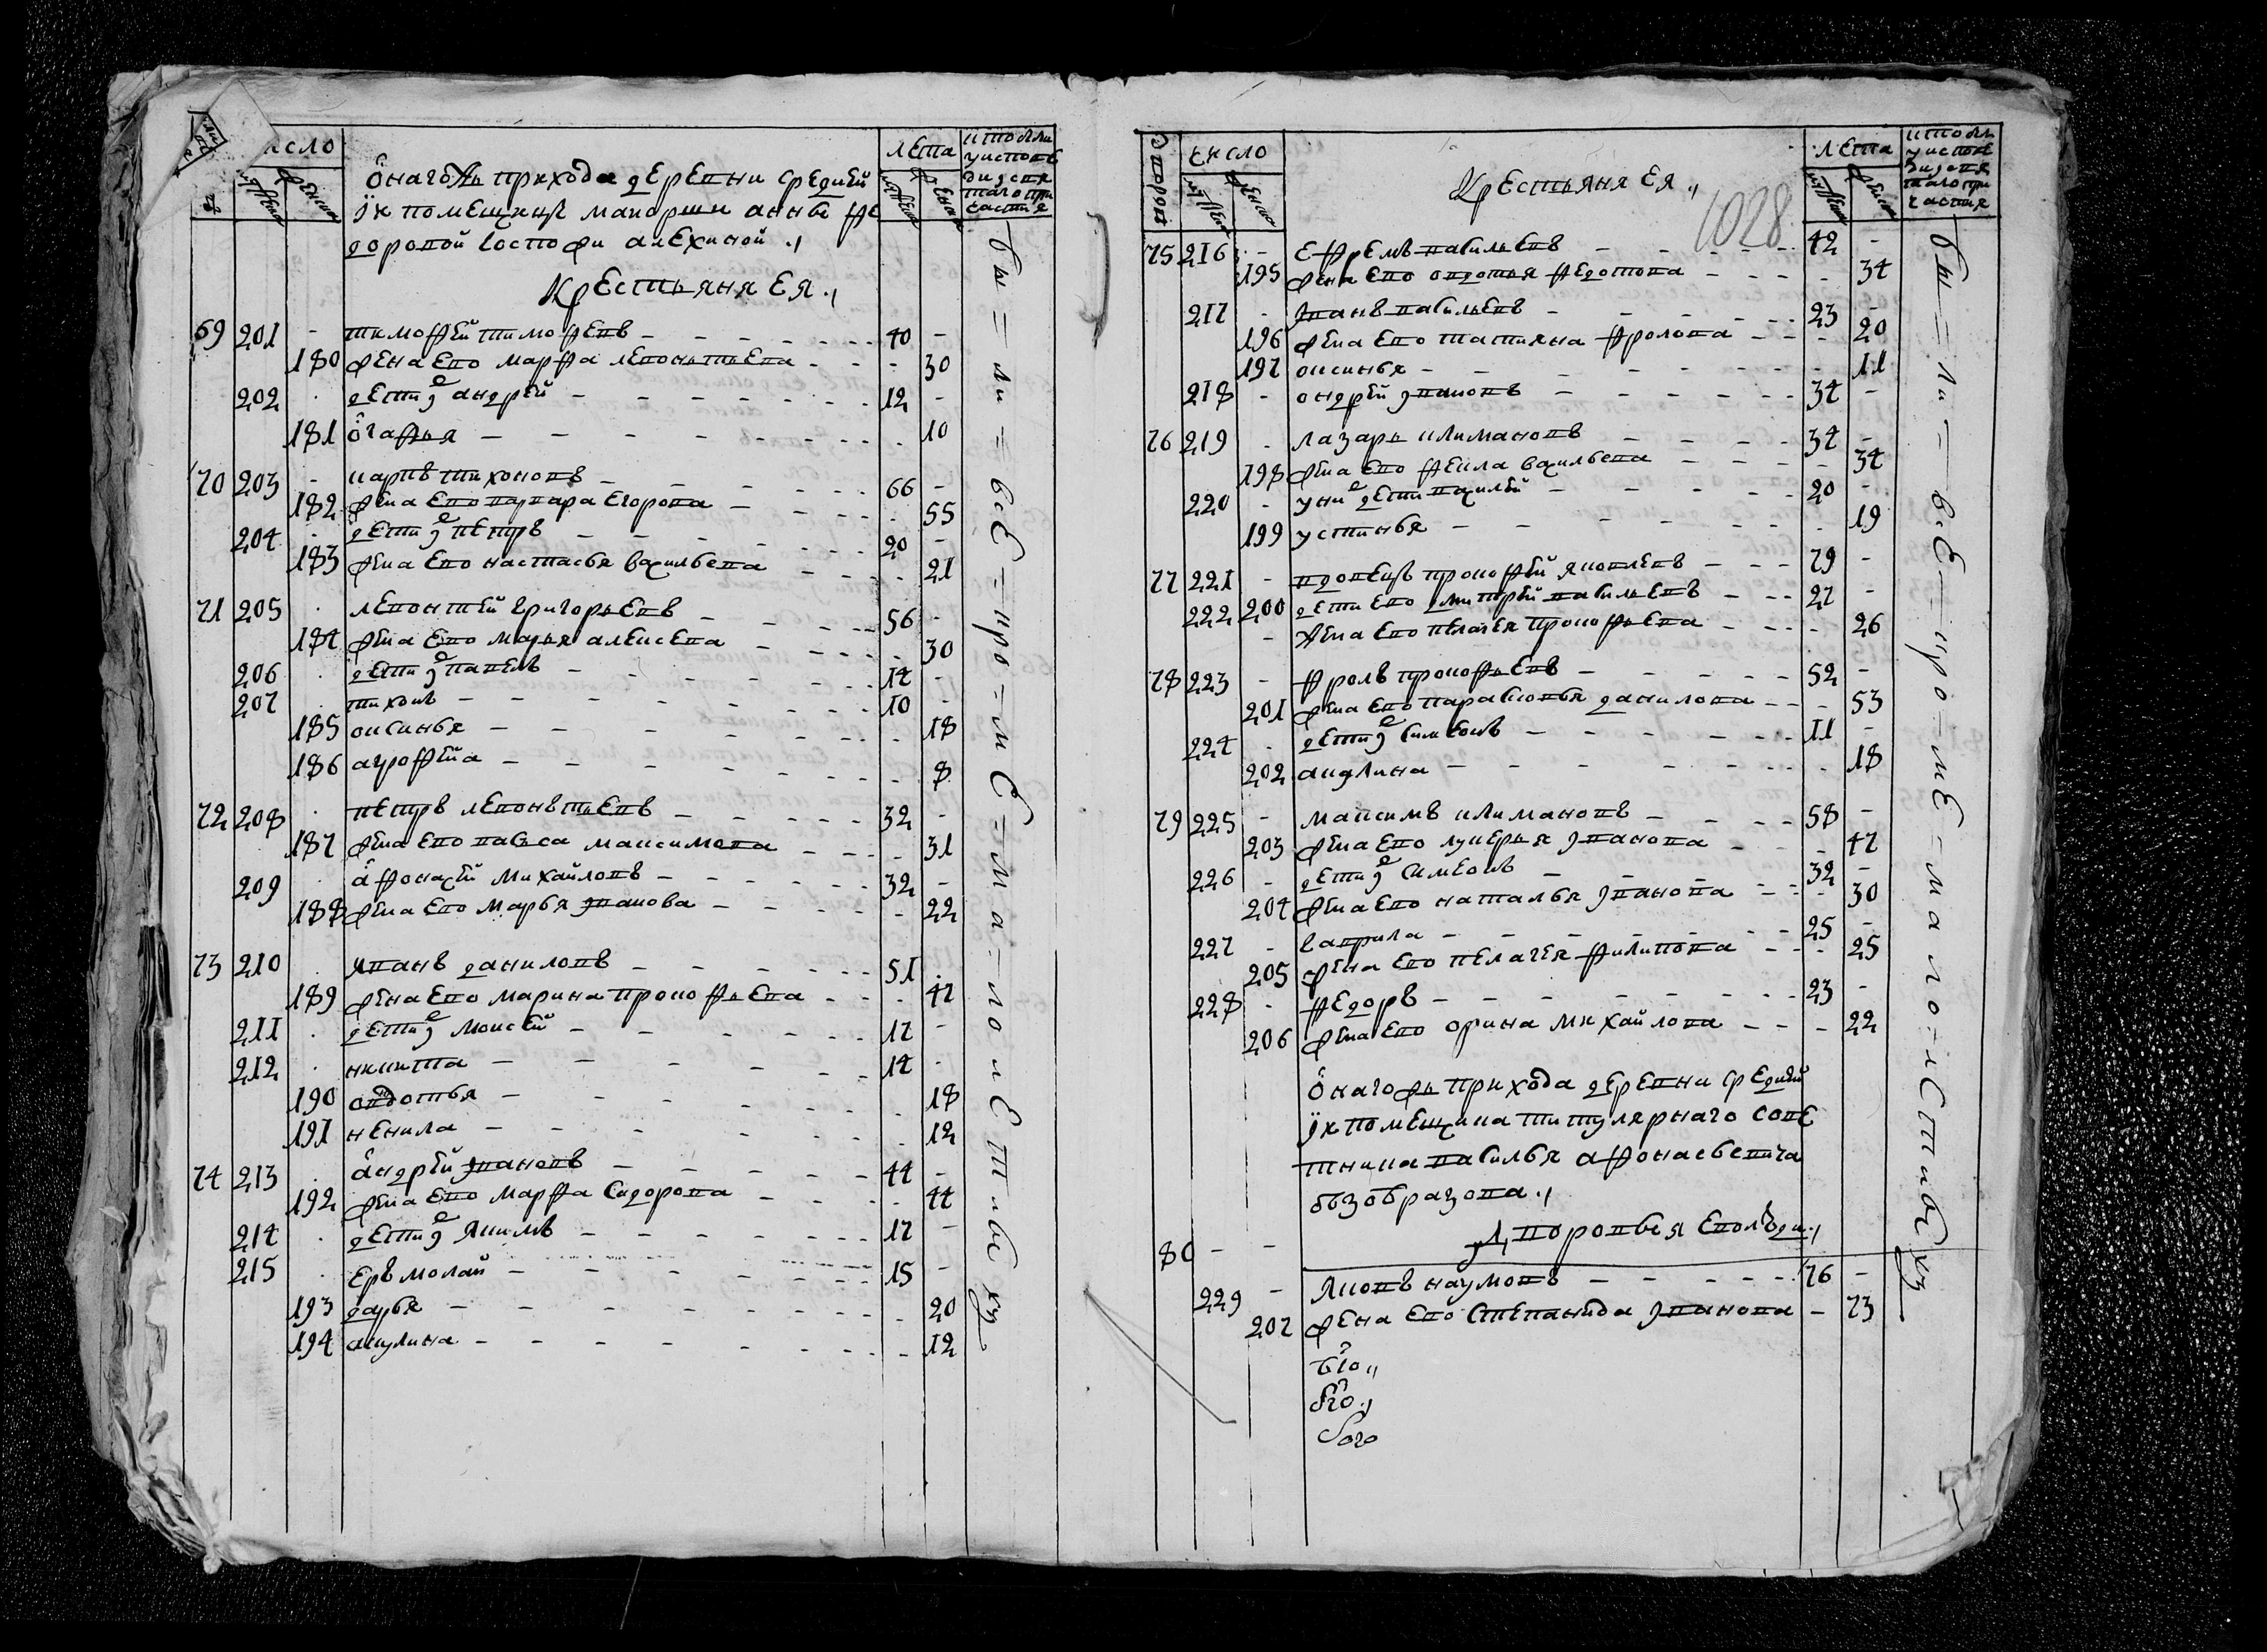 число
лета
мужеска
женска
Онагожъ прихода деревни средней
их помещицы маиорши анны фе
доровой госпожи алехиной
Крестьяня ея
69 201 - тимофей тимофеевъ - 40 -
180 жена ево марфа левонтьева - 30
202 дети их андрей - 12 -
181 огафья - 10
70 203 - карпъ тихоновъ - 66 -
182 жена ево варвара егорова - 55
204 дети их петръ - 20 -
183 жена ево настасья васильева - 21
71 205 левонтей григорьевъ - 56 -
184 жена ево марья алексева - 30
206 дети их павелъ - 14 -
207 тихонъ - 10 -
185 оксинья - 18
186 агрофена - 8
72 208 петръ левонътьевъ - 32 -
187 жена ево васса максимова - 31
209 афонасей михайловъ - 32 -
188 жена ево марья иванова - 22
73 210 иванъ даниловъ - 51
189 жена ево марина прокофьева - 47
211 дети их моисей - 17 -
212 никита - 14 -
190 овдотья - 18
191 ненила - 12
74 213 андрей ивановъ - 44 -
192 жена ево марфа сидорова - 44
214 дети их якимъ - 17 -
215 ерьмолай - 15 -
193 дарья - 20
194 акулина - 12
бы=ли=все=кро=ме=ма=ло=ле=тныхъ
число
лета
мужеска
женска
Крестьяня ея
1028
75 216 - ефремъ васильевъ - 42 -
195 жена ево овдотья федотова - 34
217 - иванъ васильевъ - 23
196 жена ево татияна фролова - 20
197 оксинья - 11
218 - ондрей ивановъ - 34 -
76 219 - лазарь климановъ - 34 -
198 жена ево фекла васильева - 34
220 - у них дети василей - 20
199 устинья - 19
77 221 - вдовецъ прокофей яковлевъ - 79 -
222 200 дети ево дмитрей васильевъ - 27 -
- жена ево пелагея прокофьева - 26
78 223 - фролъ прокофьевъ - 52 -
201 жена ево парасковья данилова - 53
224 - дети их симеонъ - 11 -
202 акулина - 18
79 225 - максимъ климановъ - 58 -
203 жена ево лукерья иванова - 47
226 - дети их симеонъ - 32 -
204 жена ево наталья иванова - 30
227 - гаврила - 25 -
205 жена ево пелагея филипова - 25
228 - федоръ - 23 -
206 жена ево орина михайлова - 22
Онагожъ прихода деревни средней
их помещика титулярнаго сове
тника василья афонасьевича
бЪзобразова
дворовыя ево люди
80 - -
229 - яковъ наумовъ - 76 -
207 жена ево степанида иванова - 73
бы=ли=все=кро=ме=ма=ло=ле=тныхъ